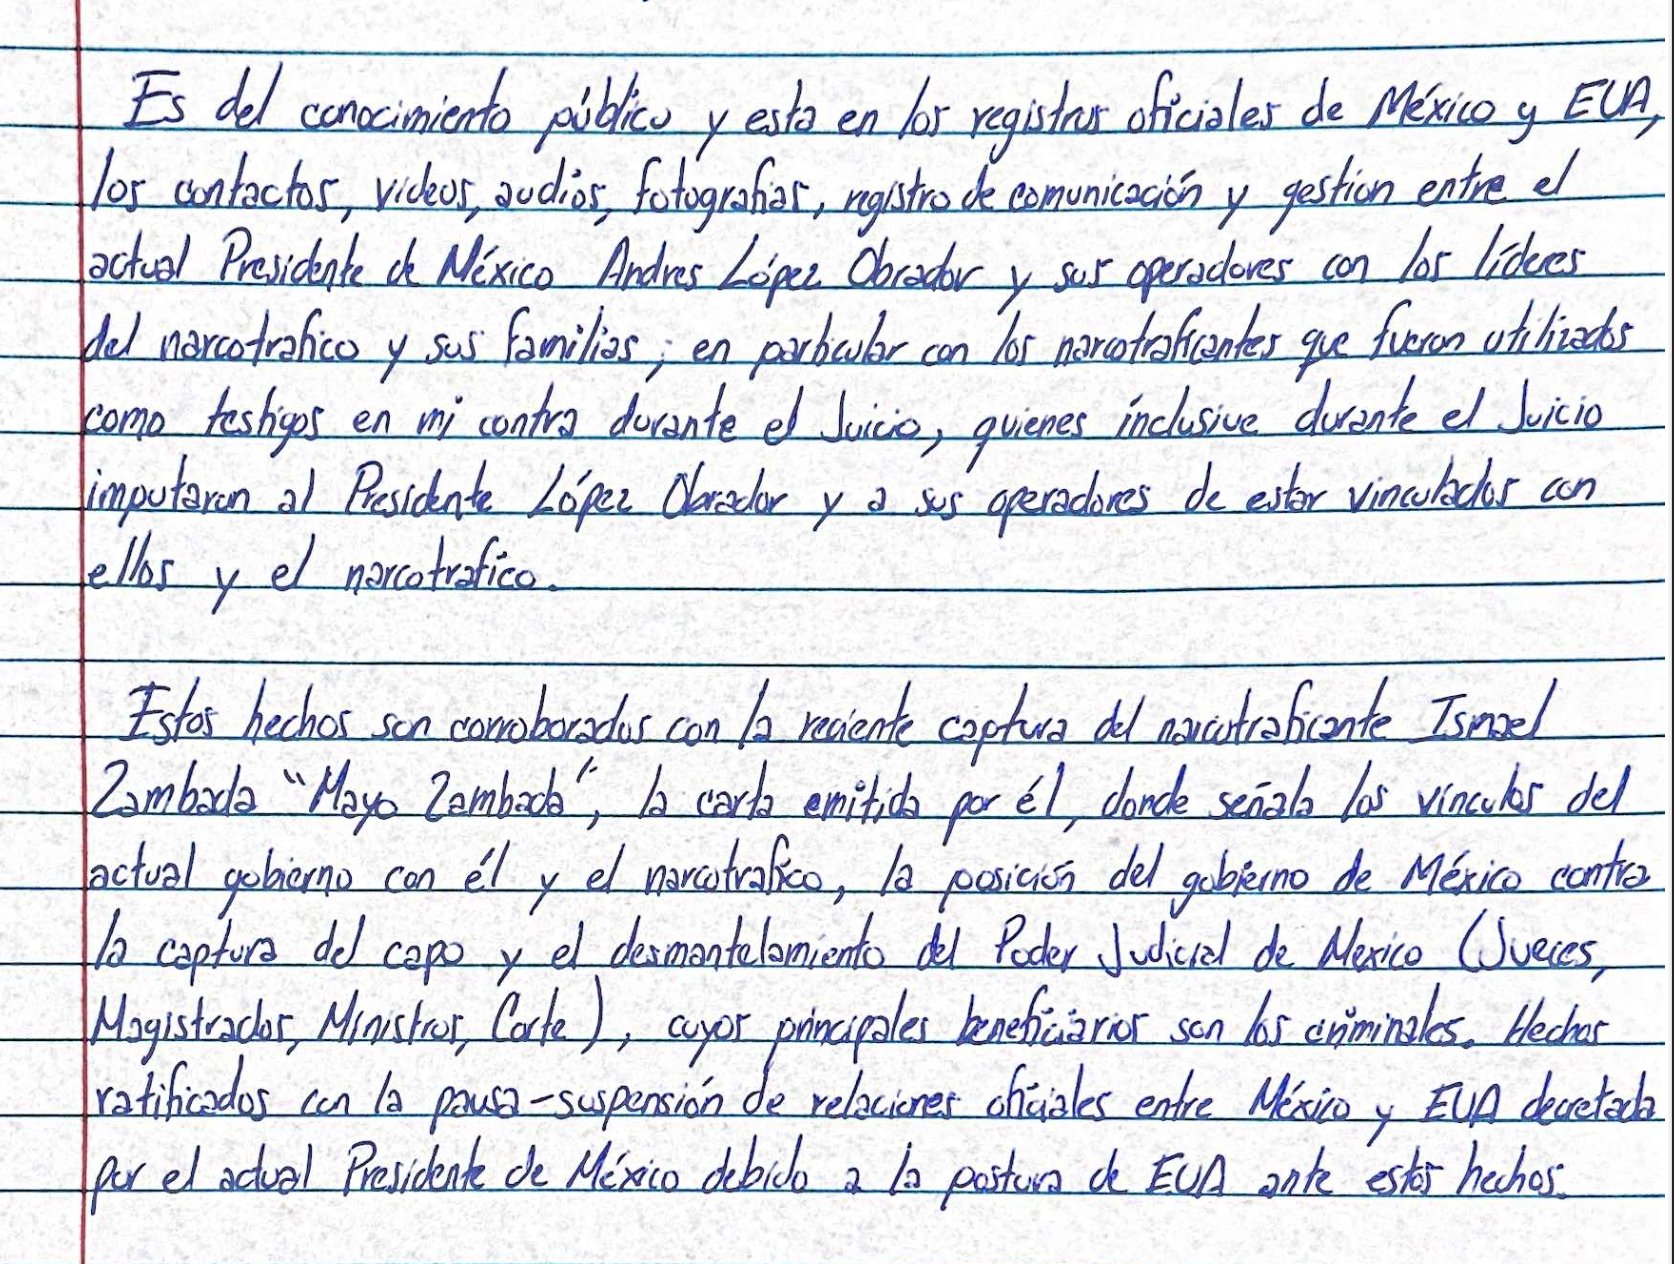 Es del conocimiento público y esta en los registros oficiales de México y EUA,
los contactos, videos, audios, fotografias, registro de comunicación y gestion entre el
actual Presidente de México Andres López Obrador y sus operadores con los líderes
del narcotrafico y sus familias; en particular con los narcotraficantes que fueron utilizados
como testigos en mi contra durante el Juicio, quienes inclusive durante el Juicio
imputaron al Presidente López Obrador y a sus operadores de estar vinculados con
ellos y el narcotrafico.
Estos hechos son corroborados con la reciente captura del narcotraficante Ismael
Zambada "Mayo Zambada", la carta emitida por él, donde señala los vinculos del
actual gobierno con él y el narcotrafico, la posición del gobierno de México contra
la captura del capo y el desmantelamiento del Poder Judicial de Mexico (Jueces,
Magistrados, Ministros, Corte), cuyos principales beneficiarios son los criminales. Hechos
ratificados con la pausa-suspensión de relaciones oficiales entre México y EUA decretada
por el actual Presidente de México debido a la postura de EUA ante estos hechos.